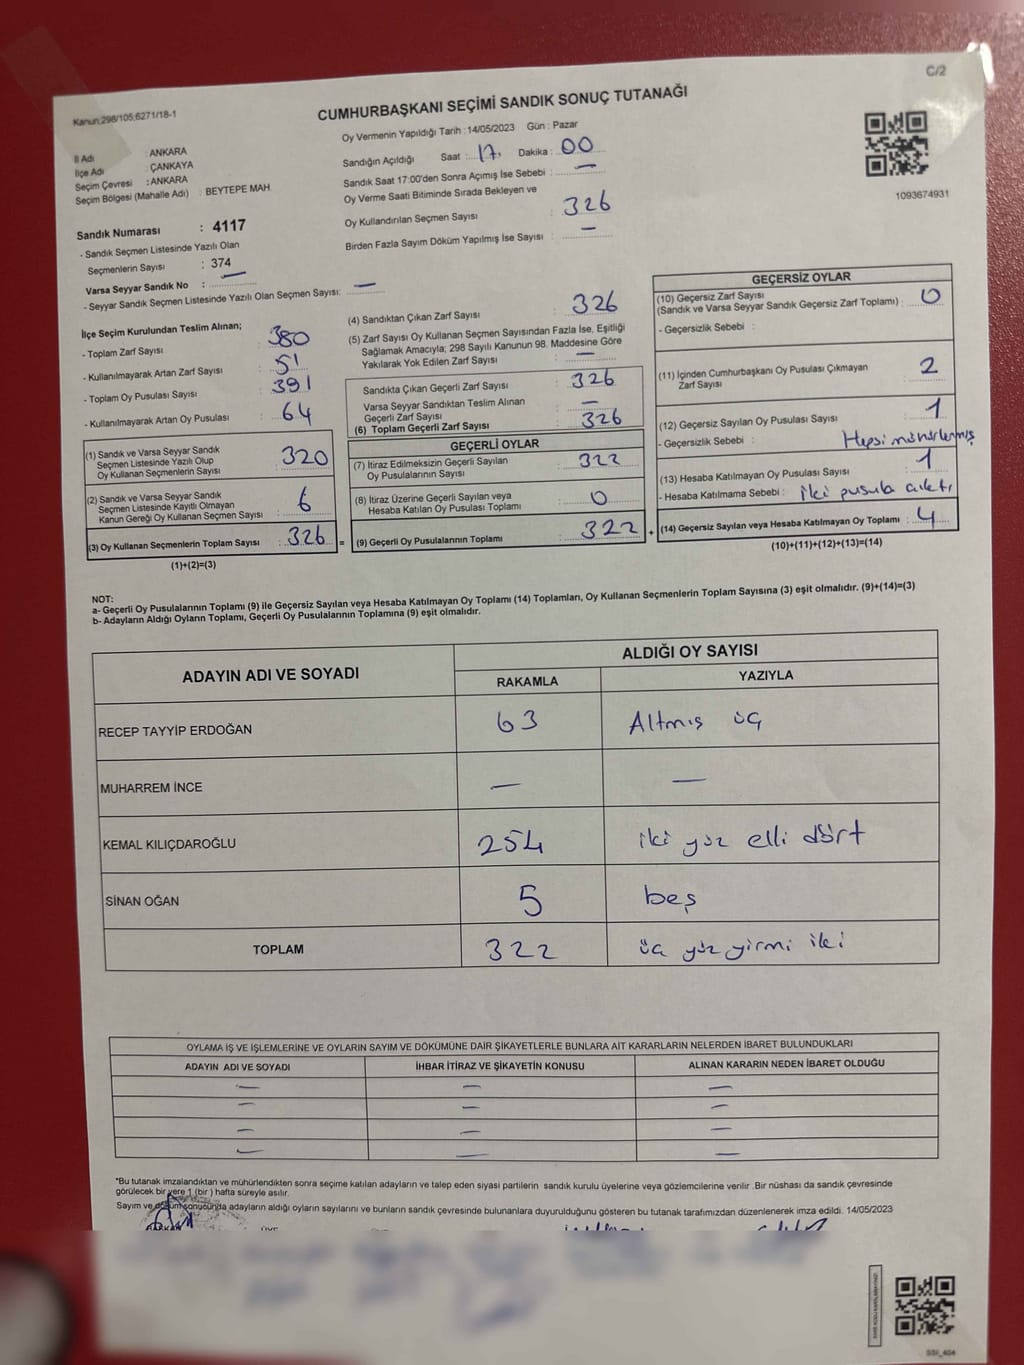 C/2
Kanun;298/105;6271/18-1
CUMHURBAŞKANI SEÇİMİ SANDIK SONUÇ TUTANAĞI
İl Adı : ANKARA
İlçe Adı : ÇANKAYA
Seçim Çevresi : ANKARA
Seçim Bölgesi (Mahalle Adı) : BEYTEPE MAH.
Oy Vermenin Yapıldığı Tarih : 14/05/2023 Gün : Pazar
Sandığın Açıldığı Saat : 17. Dakika : 00
Sandık Saat 17:00'den Sonra Açımış İse Sebebi : —
Oy Verme Saati Bitiminde Sırada Bekleyen ve
Oy Kullandırılan Seçmen Sayısı : 326
Birden Fazla Sayım Döküm Yapılmış İse Sayısı : —
1093674931
Sandık Numarası : 4117
- Sandık Seçmen Listesinde Yazılı Olan
Seçmenlerin Sayısı : 374
Varsa Seyyar Sandık No : —
- Seyyar Sandık Seçmen Listesinde Yazılı Olan Seçmen Sayısı: —
İlçe Seçim Kurulundan Teslim Alınan;
- Toplam Zarf Sayısı : 380
- Kullanılmayarak Artan Zarf Sayısı : 51
- Toplam Oy Pusulası Sayısı : 391
- Kullanılmayarak Artan Oy Pusulası : 64
(1) Sandık ve Varsa Seyyar Sandık
Seçmen Listesinde Yazılı Olup
Oy Kullanan Seçmenlerin Sayısı : 320
(2) Sandık ve Varsa Seyyar Sandık
Seçmen Listesinde Kayıtlı Olmayan
Kanun Gereği Oy Kullanan Seçmen Sayısı : 6
(3) Oy Kullanan Seçmenlerin Toplam Sayısı : 326 =
(1)+(2)=(3)
(4) Sandıktan Çıkan Zarf Sayısı : 326
(5) Zarf Sayısı Oy Kullanan Seçmen Sayısından Fazla İse, Eşitliği
Sağlamak Amacıyla; 298 Sayılı Kanunun 98. Maddesine Göre
Yakılarak Yok Edilen Zarf Sayısı : —
Sandıkta Çıkan Geçerli Zarf Sayısı : 326
Varsa Seyyar Sandıktan Teslim Alınan
Geçerli Zarf Sayısı : —
(6) Toplam Geçerli Zarf Sayısı : 326
GEÇERLİ OYLAR
(7) İtiraz Edilmeksizin Geçerli Sayılan
Oy Pusulalarının Sayısı : 322
(8) İtiraz Üzerine Geçerli Sayılan veya
Hesaba Katılan Oy Pusulası Toplamı : 0
(9) Geçerli Oy Pusulalarının Toplamı : 322 +
GEÇERSİZ OYLAR
(10) Geçersiz Zarf Sayısı
(Sandık ve Varsa Seyyar Sandık Geçersiz Zarf Toplamı) : 0
- Geçersizlik Sebebi :
(11) İçinden Cumhurbaşkanı Oy Pusulası Çıkmayan
Zarf Sayısı : 2
(12) Geçersiz Sayılan Oy Pusulası Sayısı : 1
- Geçersizlik Sebebi : Hepsi mühürlenmiş
(13) Hesaba Katılmayan Oy Pusulası Sayısı : 1
- Hesaba Katılmama Sebebi : iki pusula çıktı
(14) Geçersiz Sayılan veya Hesaba Katılmayan Oy Toplamı : 4
(10)+(11)+(12)+(13)=(14)
NOT:
a- Geçerli Oy Pusulalarının Toplamı (9) ile Geçersiz Sayılan veya Hesaba Katılmayan Oy Toplamı (14) Toplamları, Oy Kullanan Seçmenlerin Toplam Sayısına (3) eşit olmalıdır. (9)+(14)=(3)
b- Adayların Aldığı Oyların Toplamı, Geçerli Oy Pusulalarının Toplamına (9) eşit olmalıdır.
ADAYIN ADI VE SOYADI ALDIĞI OY SAYISI
RAKAMLA YAZIYLA
RECEP TAYYİP ERDOĞAN 63 Altmış üç
MUHARREM İNCE — —
KEMAL KILIÇDAROĞLU 254 iki yüz elli dört
SİNAN OĞAN 5 beş
TOPLAM 322 üç yüz yirmi iki
OYLAMA İŞ VE İŞLEMLERİNE VE OYLARIN SAYIM VE DÖKÜMÜNE DAİR ŞİKAYETLERLE BUNLARA AİT KARARLARIN NELERDEN İBARET BULUNDUKLARI
ADAYIN ADI VE SOYADI İHBAR İTİRAZ VE ŞİKAYETİN KONUSU ALINAN KARARIN NEDEN İBARET OLDUĞU
— — —
— — —
— — —
— — —
*Bu tutanak imzalandıktan ve mühürlendikten sonra seçime katılan adayların ve talep eden siyasi partilerin sandık kurulu üyelerine veya gözlemcilerine verilir .Bir nüshası da sandık çevresinde
görülecek bir yere 1 (bir ) hafta süreyle asılır.
Sayım ve döküm sonucunda adayların aldığı oyların sayılarını ve bunların sandık çevresinde bulunanlara duyurulduğunu gösteren bu tutanak tarafımızdan düzenlenerek imza edildi. 14/05/2023